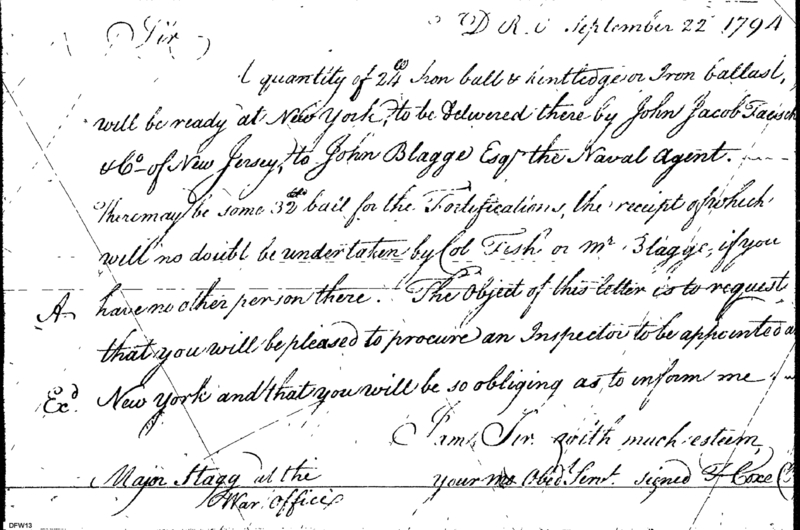 T D R O September 22 1794
Sir
A quantity of 24 lb Iron ball & kentledge or Iron ballast,
will be ready at New York, to be delivered there by John Jacob Faesch
& Co of New Jersey, to John Blagge Esqr the Naval Agent.
There may be some 32 lb ball for the Fortifications, the receipt of which
will no doubt be undertaken by Col Fish or Mr Blagge, if you
have no other person there. The Object of this letter is to request
A
that you will be pleased to procure an Inspector to be appointed a
New York and that you will be so obliging as to inform me
Exd.
I am, Sir with much esteem
Your mo Obedt Servt. signed T Coxe
Major Stagg at the
War Office
DFW13